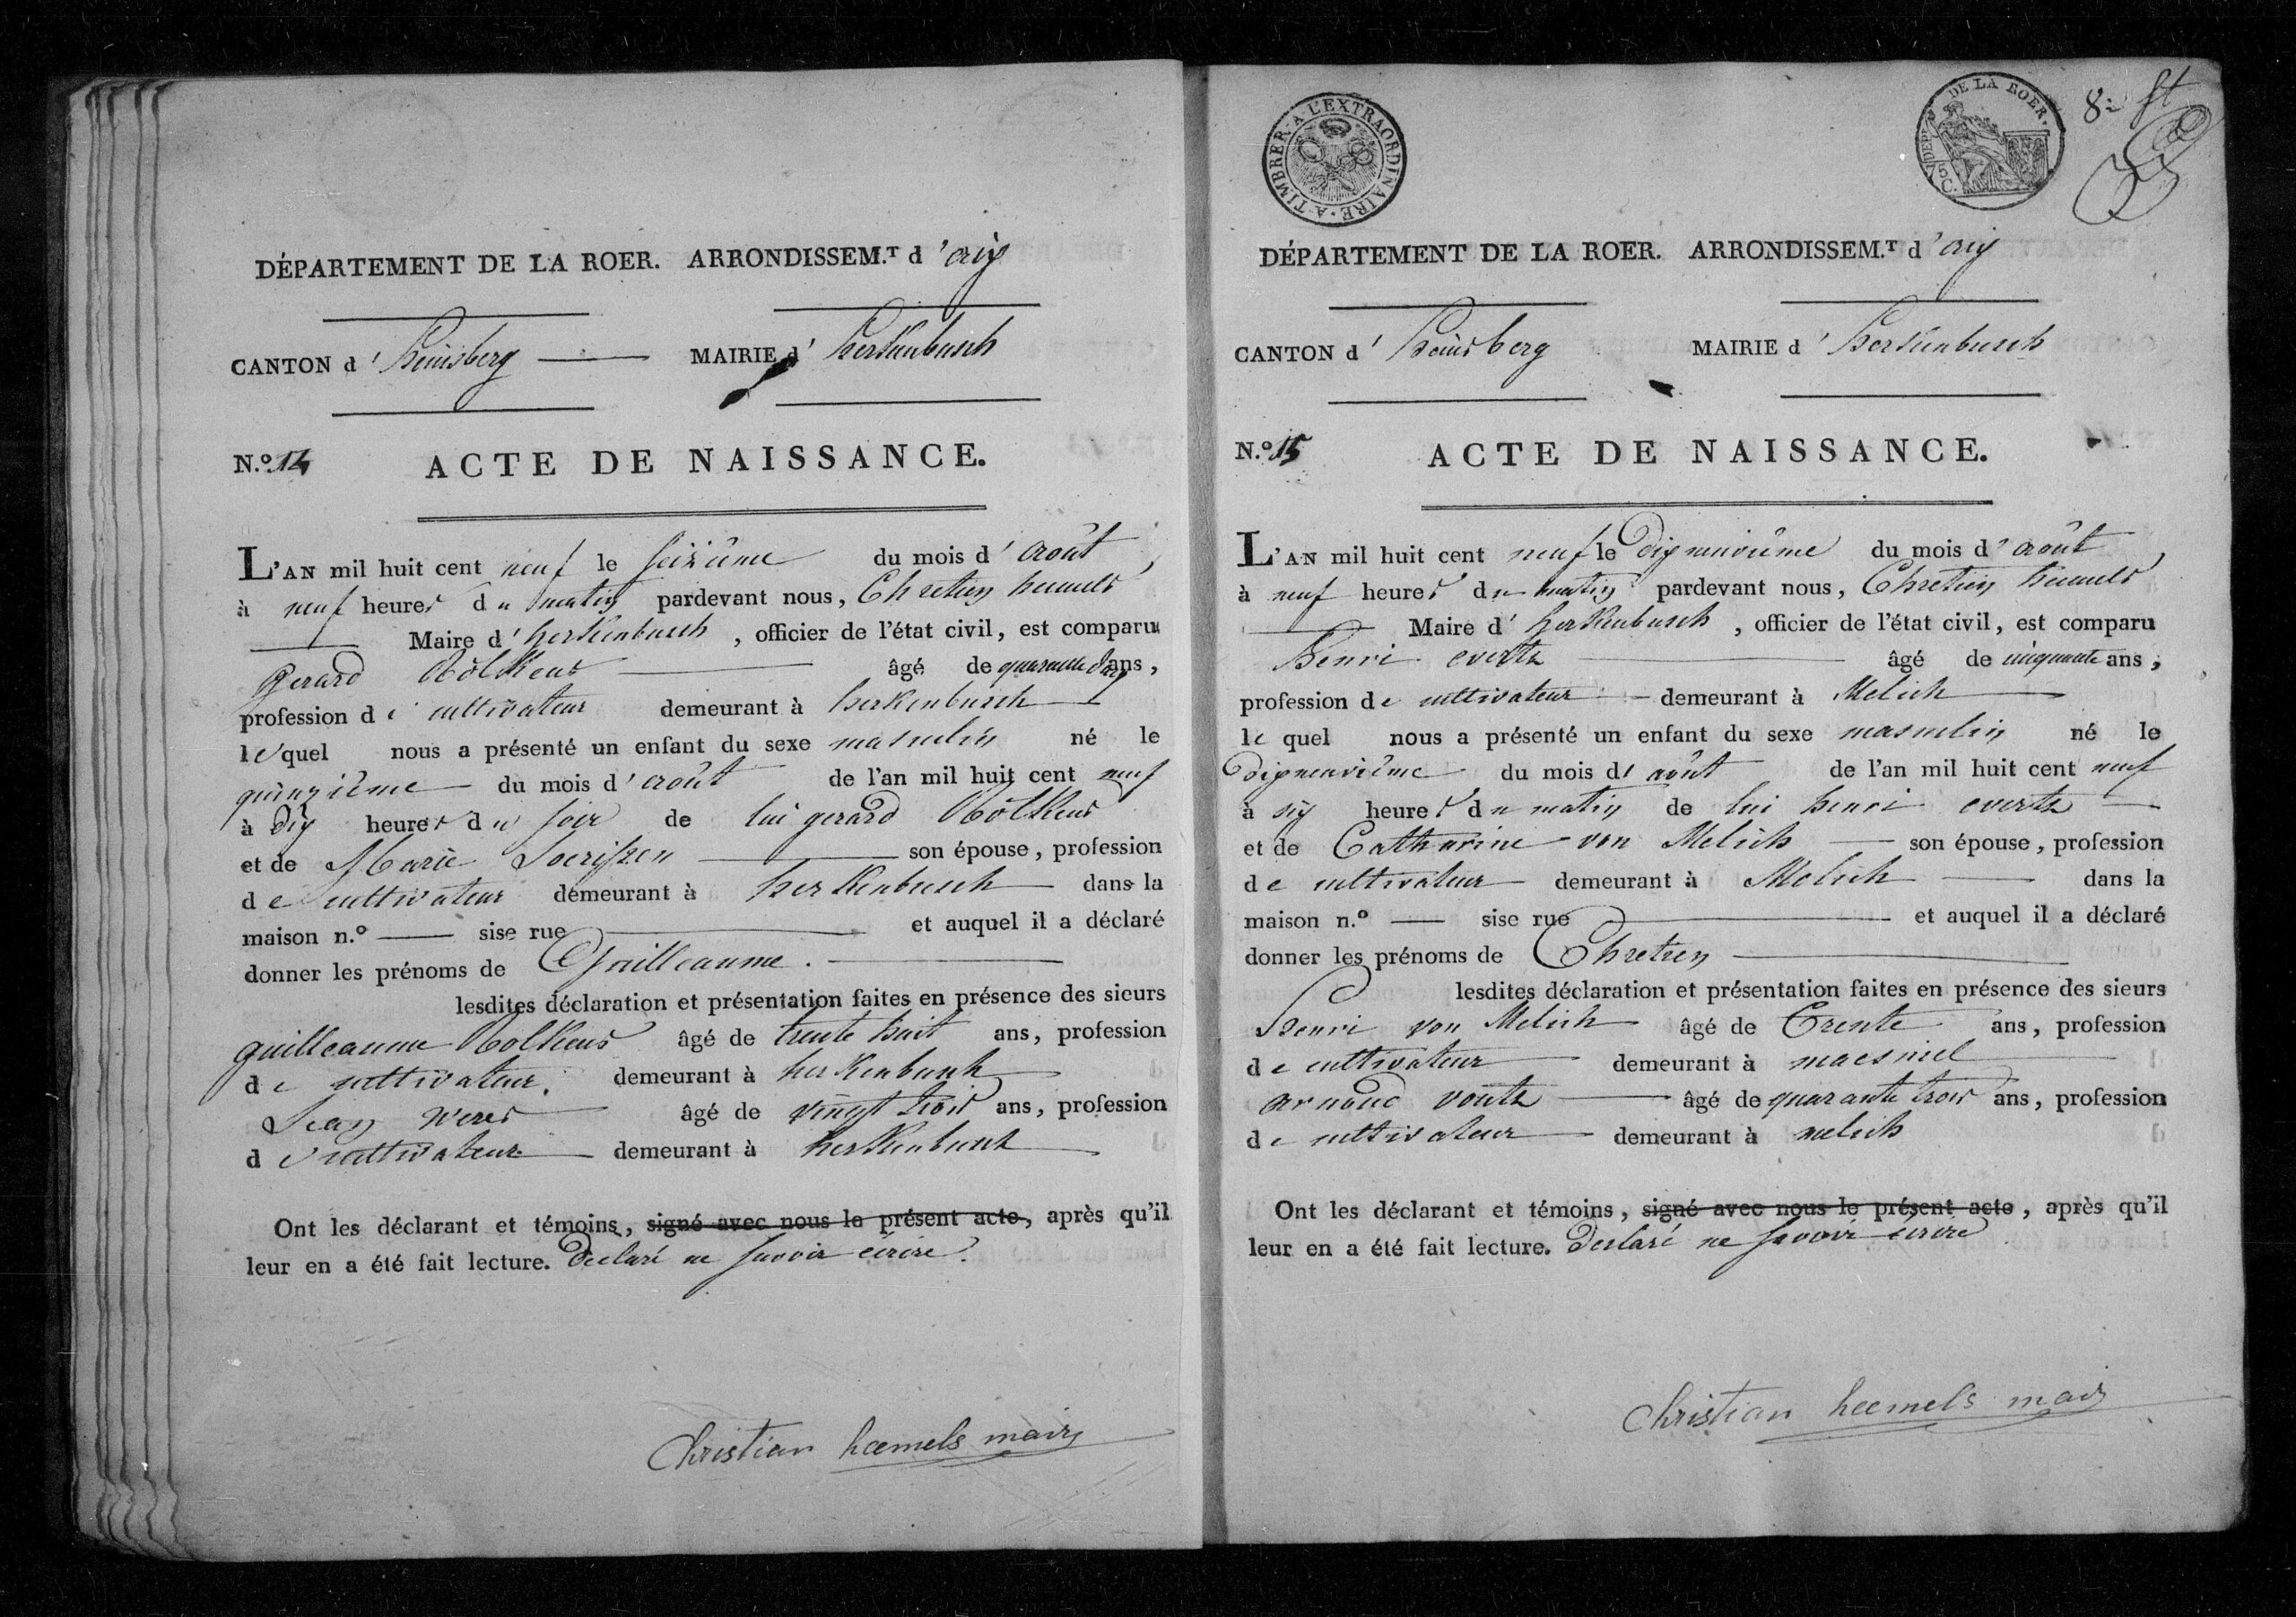 DÉPARTEMENT DE LA ROER. ARRONDISSEM.T d'aix
CANTON d'heinsberg MAIRIE d'herkenbusch
N.º 14 ACTE DE NAISSANCE.
L'AN mil huit cent neuf le seizième du mois d'août,
à neuf heures du matin pardevant nous, Chretien hemels
Maire d'herkenbusch, officier de l'état civil, est comparu
gerard Rölkens âgé de quarante ans,
profession de cultivateur demeurant à herkenbusch
lequel nous a présenté un enfant du sexe masculin né le
quinzième du mois d'août de l'an mil huit cent neuf
à dix heures du soir de lui gerard Rölkens
et de Marie son épouse, profession
de cultivateur demeurant à herkenbusch dans la
maison n.º sise rue et auquel il a déclaré
donner les prénoms de Guilleaume.
lesdites déclaration et présentation faites en présence des sieurs
guilleaume Rolkens âgé de trente huit ans, profession
de cultivateur. demeurant à herkenbusch
Jean weres âgé de vingt trois ans, profession
de cultivateur demeurant à herkenbusch
Ont les déclarant et témoins, signé avec nous le présent acte, après qu'il
leur en a été fait lecture. Declaré ne savoir écrire.
Christian hæmels mair
A TIMBRER A L'EXTRAORDINAIRE
DEPT DE LA ROER.
75 C.
DÉPARTEMENT DE LA ROER. ARRONDISSEM.T d'aix
CANTON d'heinsberg MAIRIE d'herkenbusch
N.º 15 ACTE DE NAISSANCE.
L'AN mil huit cent neuf le dixneuvième du mois d'août,
à neuf heures du matin pardevant nous, Chretien hemels
Maire d'herkenbusch, officier de l'état civil, est comparu
henri evertz âgé de cinquante ans,
profession de cultivateur demeurant à Melich
lequel nous a présenté un enfant du sexe masculin né le
dixneuvième du mois d'août de l'an mil huit cent neuf
à six heures du matin de lui henri evertz
et de Catharine von Melich son épouse, profession
de cultivateur demeurant à Melich dans la
maison n.º sise rue et auquel il a déclaré
donner les prénoms de Chretien
lesdites déclaration et présentation faites en présence des sieurs
henri von Melich âgé de trente ans, profession
de cultivateur demeurant à maesniel
arnaud voutz âgé de quarante trois ans, profession
de cultivateur demeurant à melich
Ont les déclarant et témoins, signé avec nous le présent acte, après qu'il
leur en a été fait lecture. Declaré ne savoir écrire
Christian hæmels mair